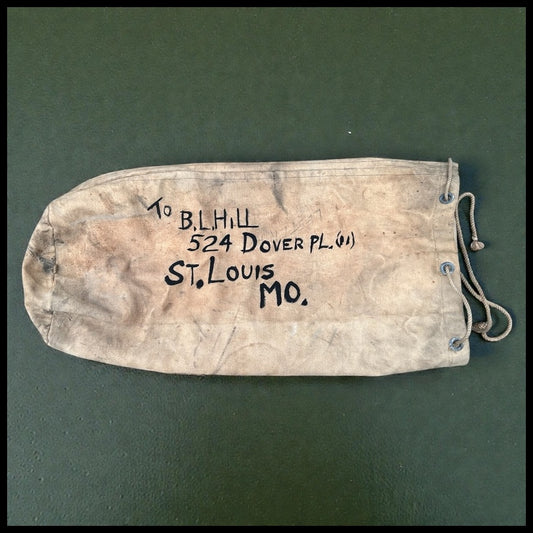 To B.L.Hill
524 Dover PL. (11)
St. Louis
Mo.